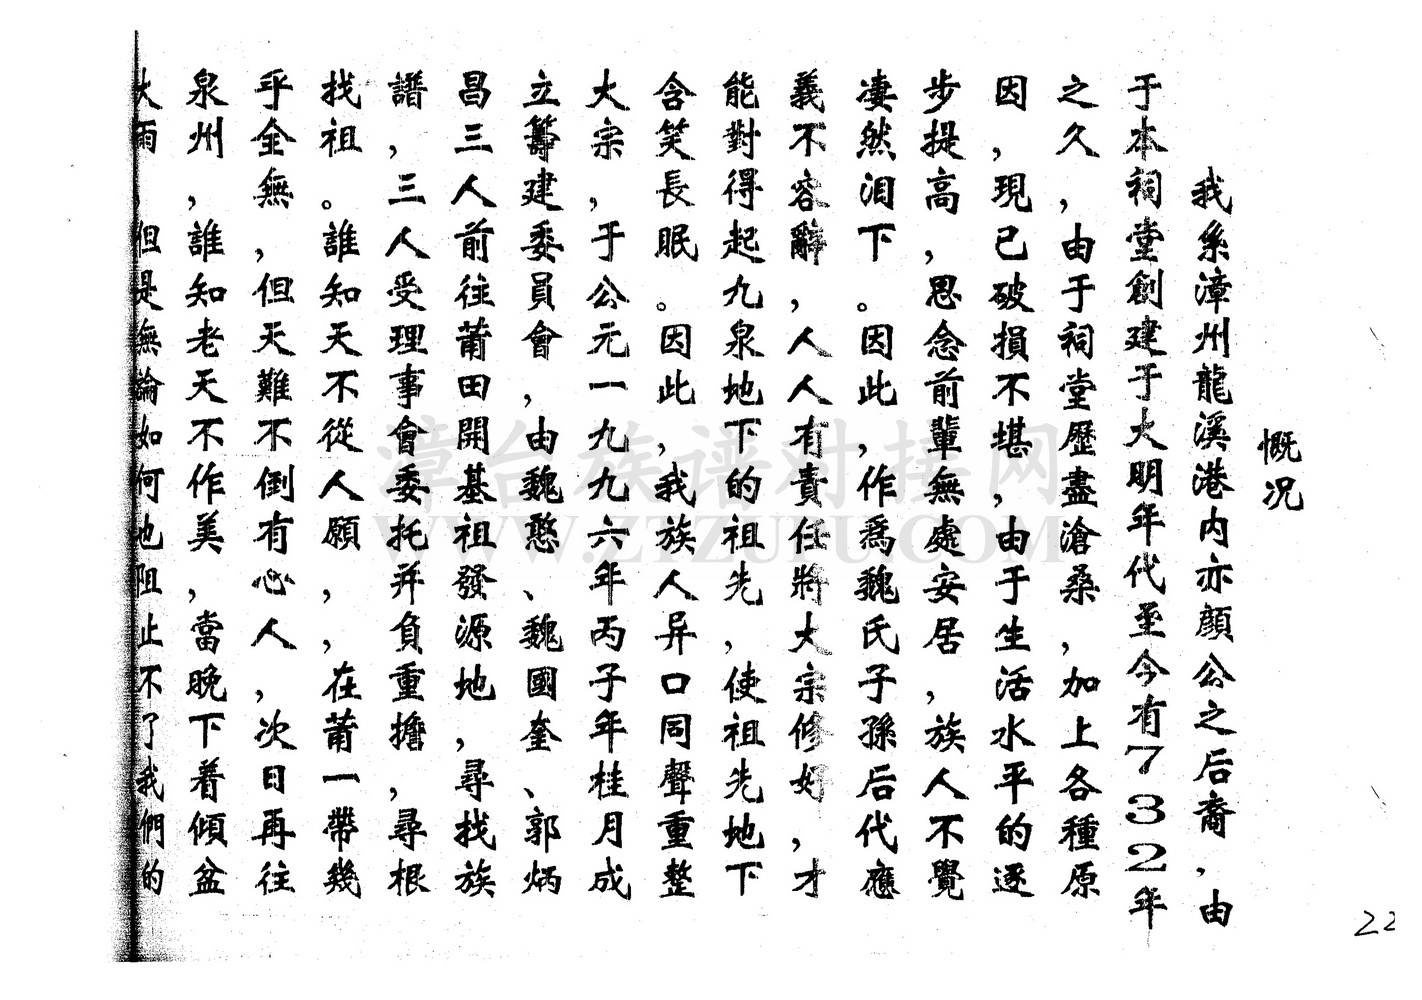 慨况
我系漳州龍溪港内亦顔公之后裔，由
于本祠堂創建于大明年代至今有732年
之久，由于祠堂歷盡滄桑，加上各種原
因，現已破損不堪，由于生活水平的逐
步提高，思念前輩無處安居，族人不覺
凄然泪下。因此，作爲魏氏子孫后代應
義不容辭，人人有責任將大宗修好，才
能對得起九泉地下的祖先，使祖先地下
含笑長眠。因此，我族人异口同聲重整
大宗，于公元一九九六年丙子年桂月成
立籌建委員會，由魏憨、魏國奎、郭炳
昌三人前往莆田開基祖發源地，尋找族
譜，三人受理事會委托并負重擔，尋根
找祖。誰知天不從人願，，在莆一帶幾
乎全無，但天難不倒有心人，次日再往
泉州，誰知老天不作美，當晚下着傾盆
大雨，但是無論如何也阻止不了我們的
22
漳台族谱对接网
WWW.ZTZUPU.COM